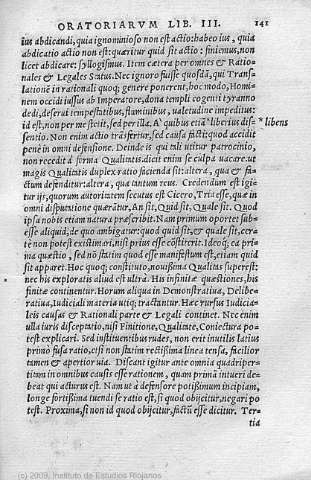 ORATORIARVM LIB. III. 141
ius abdicandi, quia ignominioso non est actio: habeo ius, quia
abdicatio actio non est: quæritur quid sit actio: finiemus, non
licet abdicare; syllogismus. Item cætera per omnes & Ratio-
nales & Legales Status. Nec ignoro fuisse quosdā, qui Trans
lationē in rationali quoq; genere ponerent, hoc modo, Homi-
nem occidi iussus ab Imperatore, dona templi cogenti tyranno
dedi, deserui tempestatibus, fluminibus, ualetudine impeditus:
id est, non per me stetit, sed per illa. A' quibus etiā liberius dis- * libens
sentio. Non enim actio trāsfertur, sed causa facti: quod accidit
penè in omni defensione. Deinde is qui tali utitur patrocinio,
non recedit à forma Qualitatis: dicit enim se culpa uacare. ut
magis Qualitatis duplex ratio facienda sit: altera, qua & fa-
ctum defenditur: altera, qua tantum reus. Credendum est igi-
tur ijs, quorum autoritatem secutus est Cicero, Tria esse, quæ in
omni disputatione quærātur, An sit, Quid sit, Quale sit. Quod
ipsa nobis etiam natura præscribit. Nam primum oportet sub-
esse aliquid, de quo ambigitur: quod quid sit, & quale sit, cer-
tè non potest existimari, nisi prius esse cōstiterit. Ideoq; ea pri-
ma quæstio, sed nō statim quod esse manifestum est, etiam quid
sit apparet. Hoc quoq; constituto, nouissima Qualitas superest:
nec his exploratis aliud est ultrà. His infinitæ quæstiones, his
finitæ continentur. Horum aliqua in Demonstratiua, Delibe-
ratiua, Iudiciali materia utiq; tractantur. Hæc rursus Iudicia-
leis causas & Rationali parte & Legali continet. Nec enim
ulla iuris disceptatio, nisi Finitione, Qualitate, Coniectura po-
test explicari. Sed instituentibus rudes, non erit inutilis latius
primò fusa ratio, et si non statim rectissima linea tensa, facilior
tamen & apertior uia. Discant igitur ante omnia quadriper-
titam in omnibus causis esse rationem, quam primā intueri de-
beat qui acturus est. Nam ut à defensore potissimum incipiam,
longè fortissima tuendi se ratio est, si quod obijcitur, negari po
test. Proxima, si non id quod obijcitur, factū esse dicitur. Ter-
tia
(c) 2009, Instituto de Estudios Riojanos